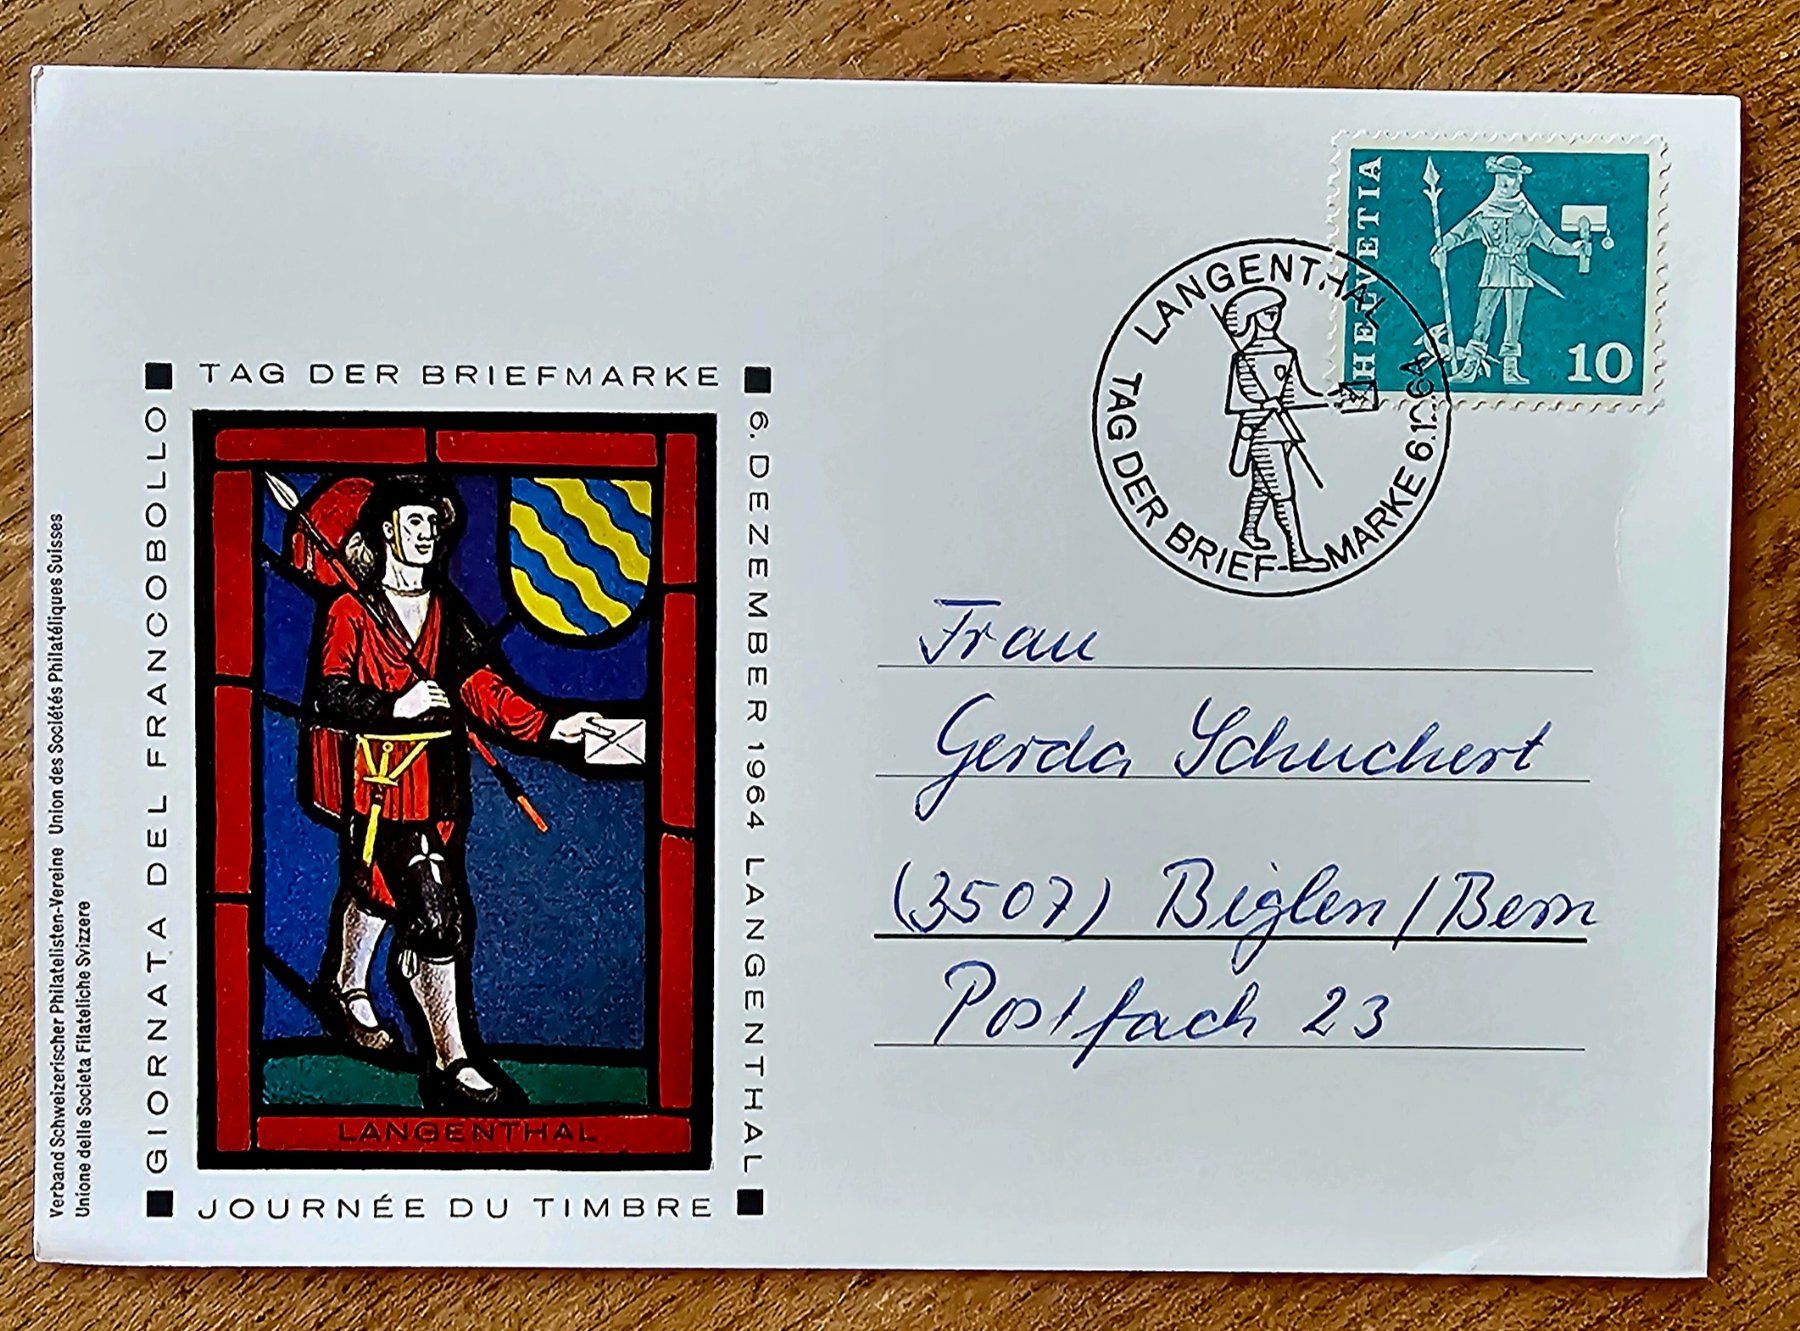 HELVETIA
10
LANGENTHAL
TAG DER BRIEF-MARKE 6.12.64
TAG DER BRIEFMARKE
6. DEZEMBER 1964 LANGENTHAL
GIORNATA DEL FRANCOBOLLO
JOURNÉE DU TIMBRE
LANGENTHAL
Verband Schweizerischer Philatelisten-Vereine Union des Sociétés Philatéliques Suisses
Unione delle Societa Filateliche Svizzere
Frau
Gerda Schuchert
(3507) Biglen / Bern
Postfach 23